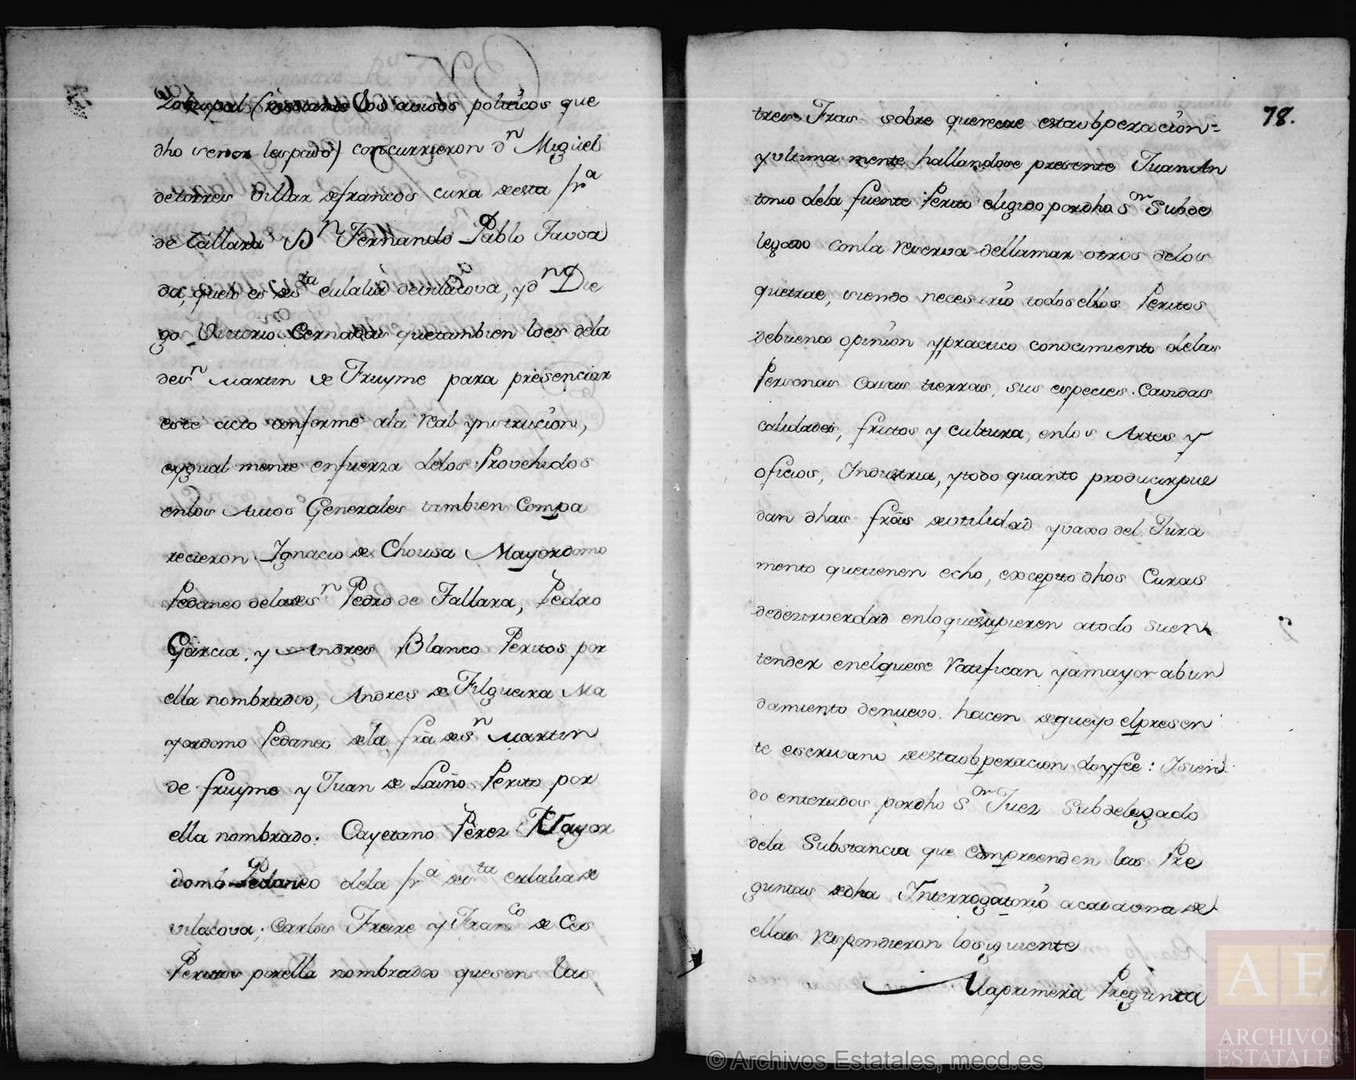 (mediante los avisos politicos que
dho señor les pasó) concurrieron dn Miguel
de torres Villar de francos cura de esta fra
de tallara Dn Fernando Pablo Tavoa
da, que lo es de sta eulalia de vilacova, y dn Die
go Victorio Cernadas que tambien lo es dela
de sn Martin de Fruyme para presenciar
este acto conforme ala real ynstrucion,
eygual mente enfuerza delos Provehidos
enlos Autos Generales tambien Compa
recieron Ignacio de Chousa Mayordomo
Pedaneo dela de sn Pedro de Tallara, Pedro
Garcia, y Andres Blanco Peritos por
ella nombrados, Andres de Filgueira Ma
yordomo Pedaneo dela fra de sn Martin
de fruyme y Juan de Laiño Perito por
ella nombrado: Cayetano Perez Mayor
domo Pedaneo dela fra de sta eulalia de
vilacova; Carlos Freire y Franco de Ces
Peritos porella nombrados queson las
78.
tres Fras sobre que recae estaobperacion=
yultima mente hallandose presente Juan An
tonio dela fuente Perito eligido pordho Sor Subde
legado conla reserva dellamar otros delos
quetrae, siendo necesario todosellos Peritos
debuena opinion ypractico conocimiento delas
Personas Casas tierras, sus especies Cavidas
calidades, frutos y cultura, enlos Artes y
oficios, Industria, ytodo quanto producirpue
dan dhas fras de utilidad yvaxo del Jura
mento quetienen echo, excepto dhos Curas
dedezirverdad enlo quesupieren atodo su en
tender enelquese ratifican yamayor abun
damiento denuevo hacen de queyo elpresen
te escrivano deestaobperacion doyfee: Y sien
do enterados pordho Sor Juez Subdelegado
dela Substancia que compreenden las Pre
guntas dedho Interrogatorio acadauna de
ellas respondieron losiguiente
Alaprimera Pregunta
© Archivos Estatales, mecd.es
AE
ARCHIVOS
ESTATALES